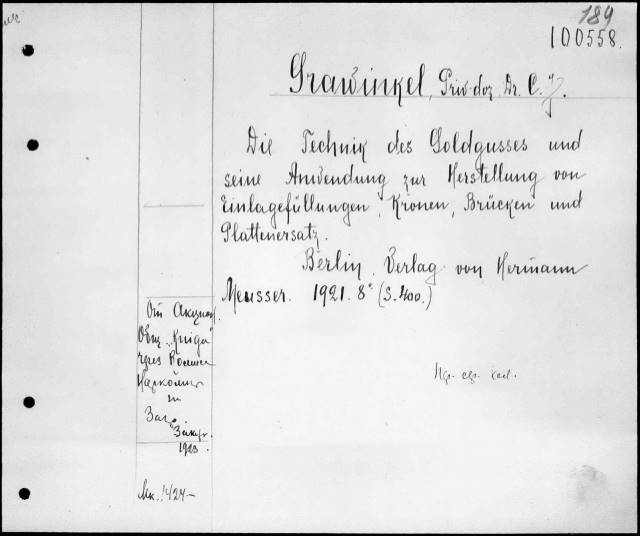 189
100558.
Grawinkel, Priv-doz Dr. C. J.
Die Technik des Goldgusses und
seine Anwendung zur Herstellung von
Einlagefüllungen, Kronen, Brücken und
Plattenersatz.
Berlin. Verlag von Hermann
Meusser. 1921. 8° (S. 400.)
От Акцион.
Общ. „Книга"
через
1923.